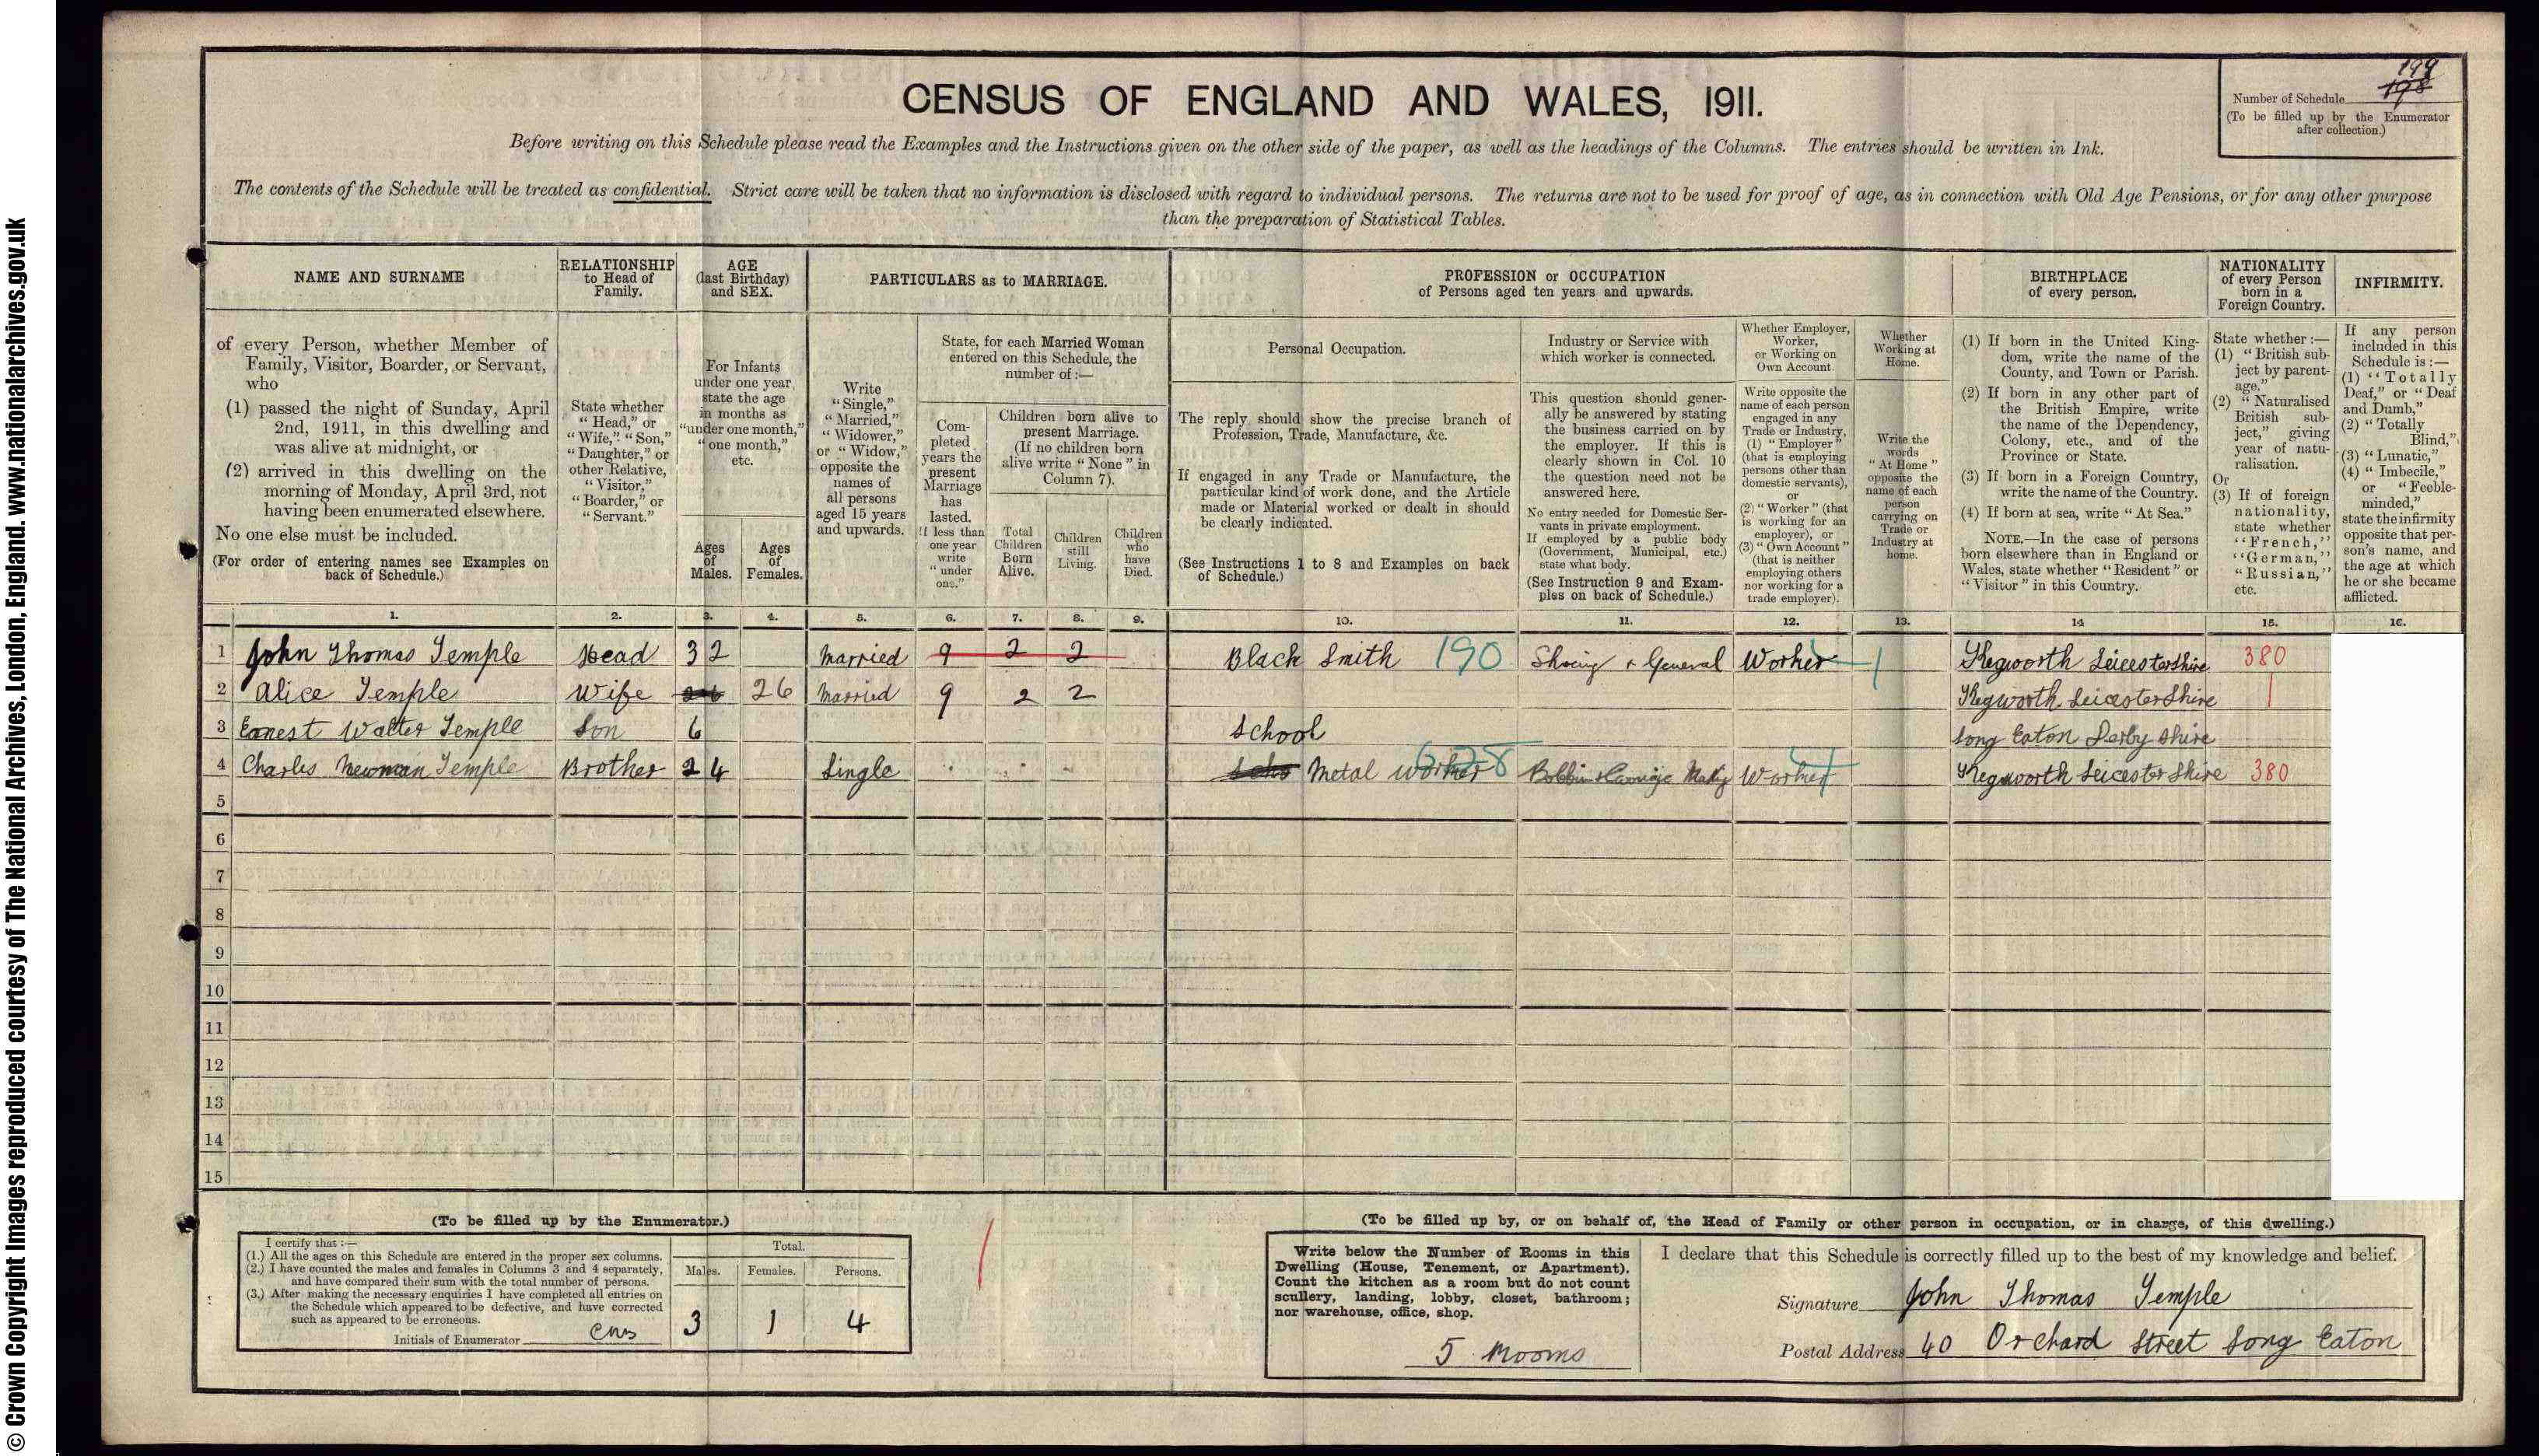 CENSUS OF ENGLAND AND WALES, 1911.
199
198
Number of Schedule
(To be filled up by the Enumerator
after collection.)
Before writing on this Schedule please read the Examples and the Instructions given on the other side of the paper, as well as the headings of the Columns. The entries should be written in Ink.
The contents of the Schedule will be treated as confidential. Strict care will be taken that no information is disclosed with regard to individual persons. The returns are not to be used for proof of age, as in connection with Old Age Pensions, or for any other purpose
than the preparation of Statistical Tables.
NAME AND SURNAME
of every Person, whether Member of
Family, Visitor, Boarder, or Servant,
who
(1) passed the night of Sunday, April
2nd, 1911, in this dwelling and
was alive at midnight, or
(2) arrived in this dwelling on the
morning of Monday, April 3rd, not
having been enumerated elsewhere.
No one else must be included.
(For order of entering names see Examples on
back of Schedule.)
RELATIONSHIP
to Head of
Family.
State whether
"Head," or
"Wife," "Son,"
"Daughter," or
other Relative,
"Visitor,"
"Boarder," or
"Servant."
AGE
(last Birthday)
and SEX.
For Infants
under one year
state the age
in months as
"under one month,"
"one month,"
etc.
Ages
of
Males.
Ages
of
Females.
PARTICULARS as to MARRIAGE.
Write
"Single,"
"Married,"
"Widower,"
or "Widow,"
opposite the
names of
all persons
aged 15 years
and upwards.
State, for each Married Woman
entered on this Schedule, the
number of :—
Com-
pleted
years the
present
Marriage
has
lasted.
If less than
one year
write
"under
one."
Children born alive to
present Marriage.
(If no children born
alive write "None" in
Column 7).
Total
Children
Born
Alive.
Children
still
Living.
Children
who
have
Died.
PROFESSION or OCCUPATION
of Persons aged ten years and upwards.
Personal Occupation.
The reply should show the precise branch of
Profession, Trade, Manufacture, &c.
If engaged in any Trade or Manufacture, the
particular kind of work done, and the Article
made or Material worked or dealt in should
be clearly indicated.
(See Instructions 1 to 8 and Examples on back
of Schedule.)
Industry or Service with
which worker is connected.
This question should gener-
ally be answered by stating
the business carried on by
the employer. If this is
clearly shown in Col. 10
the question need not be
answered here.
No entry needed for Domestic Ser-
vants in private employment.
If employed by a public body
(Government, Municipal, etc.)
state what body.
(See Instruction 9 and Exam-
ples on back of Schedule.)
Whether Employer,
Worker,
or Working on
Own Account.
Write opposite the
name of each person
engaged in any
Trade or Industry,
(1) "Employer"
(that is employing
persons other than
domestic servants),
or
(2) "Worker" (that
is working for an
employer), or
(3) "Own Account"
(that is neither
employing others
nor working for a
trade employer).
Whether
Working at
Home.
Write the
words
"At Home"
opposite the
name of each
person
carrying on
Trade or
Industry at
home.
BIRTHPLACE
of every person.
(1) If born in the United King-
dom, write the name of the
County, and Town or Parish.
(2) If born in any other part of
the British Empire, write
the name of the Dependency,
Colony, etc., and of the
Province or State.
(3) If born in a Foreign Country,
write the name of the Country.
(4) If born at sea, write "At Sea."
NOTE.—In the case of persons
born elsewhere than in England or
Wales, state whether "Resident" or
"Visitor" in this Country.
NATIONALITY
of every Person
born in a
Foreign Country.
State whether :—
(1) "British sub-
ject by parent-
age."
(2) "Naturalised
British sub-
ject," giving
year of natu-
ralisation.
Or
(3) If of foreign
nationality,
state whether
"French,"
"German,"
"Russian,"
etc.
INFIRMITY.
If any person
included in this
Schedule is :—
(1) "Totally
Deaf," or "Deaf
and Dumb,"
(2) "Totally
Blind,"
(3) "Lunatic,"
(4) "Imbecile,"
or "Feeble-
minded,"
state the infirmity
opposite that per-
son's name, and
the age at which
he or she became
afflicted.
1. 2. 3. 4. 5. 6. 7. 8. 9. 10. 11. 12. 13. 14 15. 16.
1 John Thomas Temple Head 32 Married 9 2 2 Black Smith 190 Shoeing & General Worker 1 Kegworth Leicestershire 380
2 Alice Temple Wife 26 26 Married 9 2 2 Kegworth Leicestershire
3 Ernest Walter Temple Son 6 School Long Eaton Derbyshire
4 Charles Newman Temple Brother 24 Single Metal Worker Bobbin & Carriage Making Worker Kegworth Leicestershire 380
5
6
7
8
9
10
11
12
13
14
15
(To be filled up by the Enumerator.)
I certify that :—
(1.) All the ages on this Schedule are entered in the proper sex columns.
(2.) I have counted the males and females in Columns 3 and 4 separately,
and have compared their sum with the total number of persons.
(3.) After making the necessary enquiries I have completed all entries on
the Schedule which appeared to be defective, and have corrected
such as appeared to be erroneous.
Initials of Enumerator
Total.
Males. Females. Persons.
3 1 4
(To be filled up by, or on behalf of, the Head of Family or other person in occupation, or in charge, of this dwelling.)
Write below the Number of Rooms in this
Dwelling (House, Tenement, or Apartment).
Count the kitchen as a room but do not count
scullery, landing, lobby, closet, bathroom;
nor warehouse, office, shop.
5 Rooms
I declare that this Schedule is correctly filled up to the best of my knowledge and belief.
Signature John Thomas Temple
Postal Address 40 Orchard Street Long Eaton
© Crown Copyright Images reproduced courtesy of The National Archives, London, England. www.nationalarchives.gov.uk